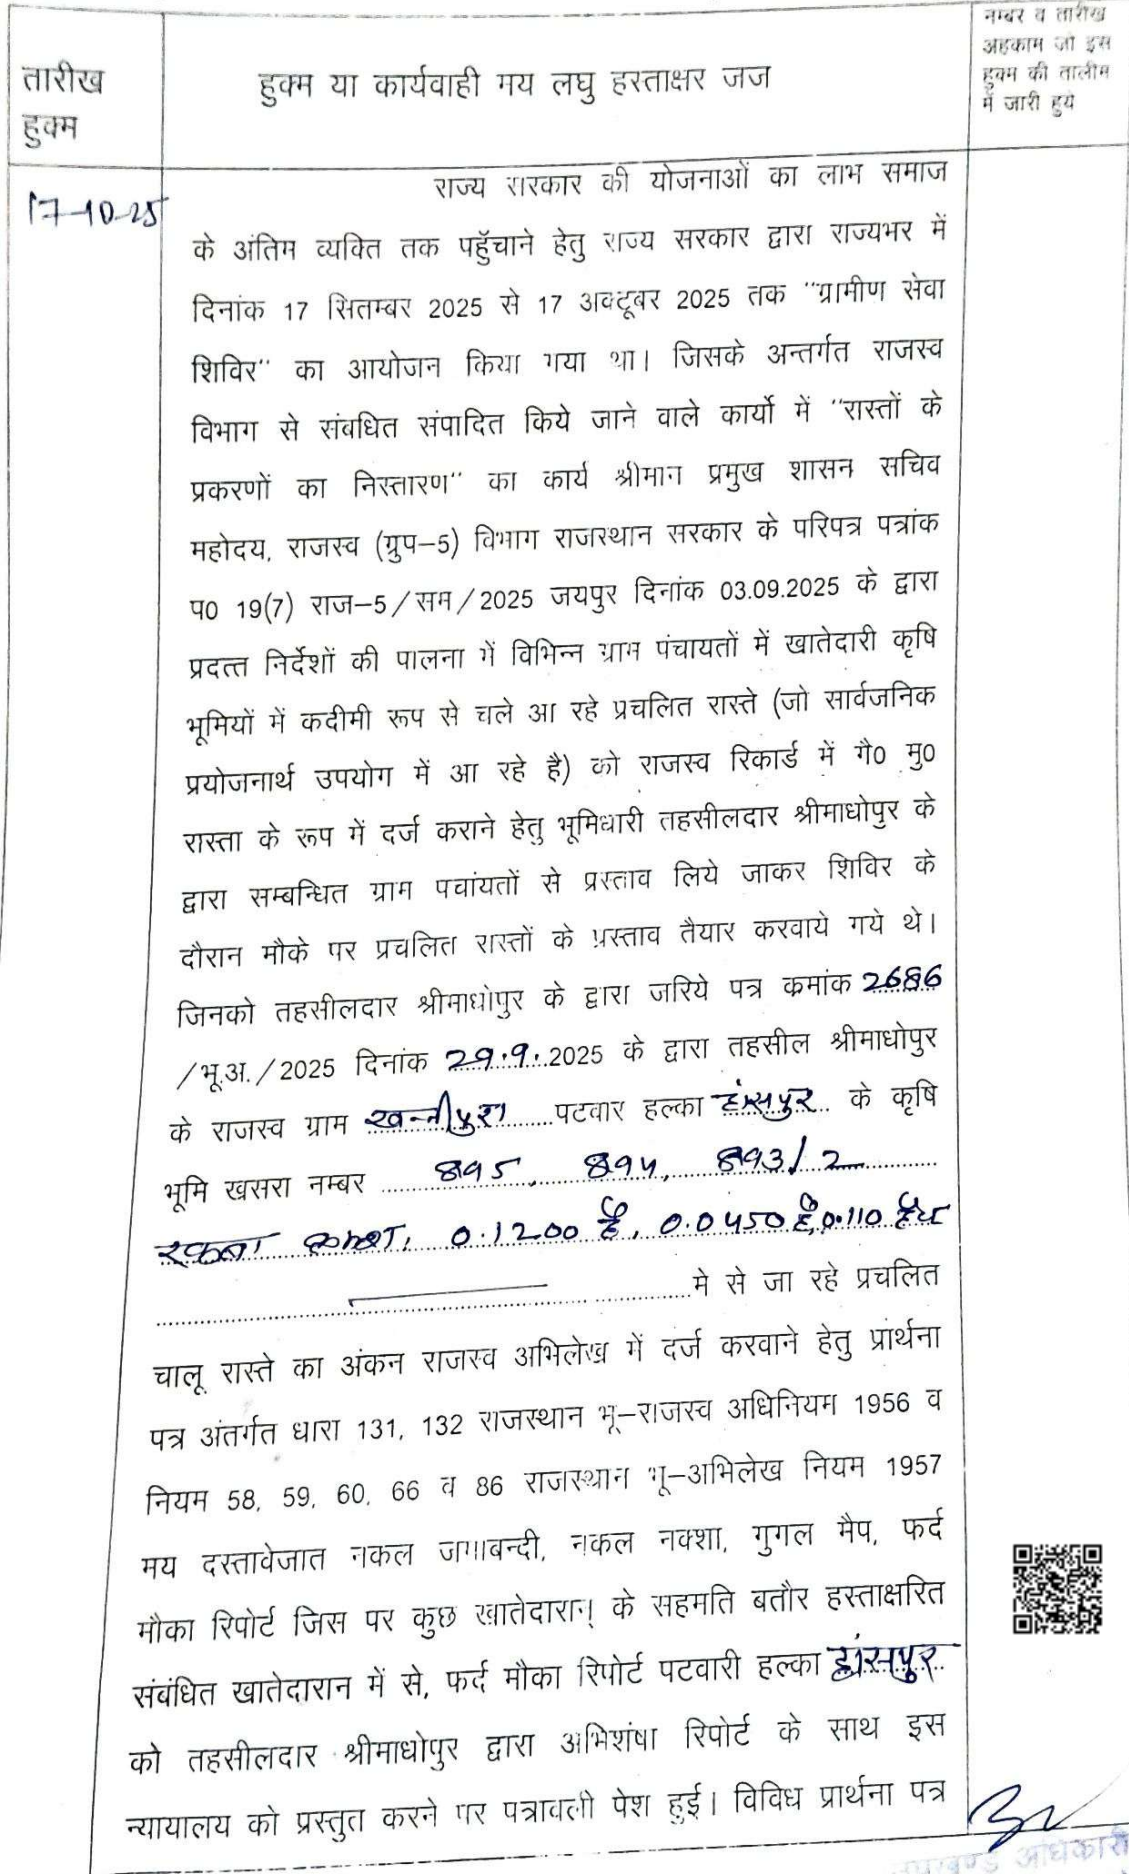 तारीख
हुक्म
हुक्म या कार्यवाही मय लघु हस्ताक्षर जज
नम्बर व तारीख
अहकाम जो इस
हुक्म की तालीम
में जारी हुये
17-10-25
राज्य सरकार की योजनाओं का लाभ समाज
के अंतिम व्यक्ति तक पहुँचाने हेतु राज्य सरकार द्वारा राज्यभर में
दिनांक 17 सितम्बर 2025 से 17 अक्टूबर 2025 तक "ग्रामीण सेवा
शिविर" का आयोजन किया गया था। जिसके अन्तर्गत राजस्व
विभाग से संबधित संपादित किये जाने वाले कार्यो में "रास्तों के
प्रकरणों का निस्तारण" का कार्य श्रीमान प्रमुख शासन सचिव
महोदय, राजस्व (ग्रुप–5) विभाग राजस्थान सरकार के परिपत्र पत्रांक
प0 19(7) राज–5/सम/2025 जयपुर दिनांक 03.09.2025 के द्वारा
प्रदत्त निर्देशों की पालना में विभिन्न ग्राम पंचायतों में खातेदारी कृषि
भूमियों में कदीमी रूप से चले आ रहे प्रचलित रास्ते (जो सार्वजनिक
प्रयोजनार्थ उपयोग में आ रहे है) को राजस्व रिकार्ड में गै0 मु0
रास्ता के रूप में दर्ज कराने हेतु भूमिधारी तहसीलदार श्रीमाधोपुर के
द्वारा सम्बन्धित ग्राम पचांयतों से प्रस्ताव लिये जाकर शिविर के
दौरान मौके पर प्रचलित रास्तों के प्रस्ताव तैयार करवाये गये थे।
जिनको तहसीलदार श्रीमाधोपुर के द्वारा जरिये पत्र क्रमांक 2686
/भू.अ./2025 दिनांक 29.9.2025 के द्वारा तहसील श्रीमाधोपुर
के राजस्व ग्राम खन्नीपुरा पटवार हल्का हांसपुर के कृषि
भूमि खसरा नम्बर 895, 894, 893/2
रकबा क्रमश: 0.1200 है, 0.0450 है, 0.110 है
मे से जा रहे प्रचलित
चालू रास्ते का अंकन राजस्व अभिलेख में दर्ज करवाने हेतु प्रार्थना
पत्र अंतर्गत धारा 131, 132 राजस्थान भू–राजस्व अधिनियम 1956 व
नियम 58, 59, 60, 66 व 86 राजस्थान भू–अभिलेख नियम 1957
मय दस्तावेजात नकल जमाबन्दी, नकल नक्शा, गुगल मैप, फर्द
मौका रिपोर्ट जिस पर कुछ खातेदारान् के सहमति बतौर हस्ताक्षरित
संबंधित खातेदारान में से, फर्द मौका रिपोर्ट पटवारी हल्का हांसपुर
को तहसीलदार श्रीमाधोपुर द्वारा अभिशंषा रिपोर्ट के साथ इस
न्यायालय को प्रस्तुत करने पर पत्रावली पेश हुई। विविध प्रार्थना पत्र
उपखण्ड अधिकारी